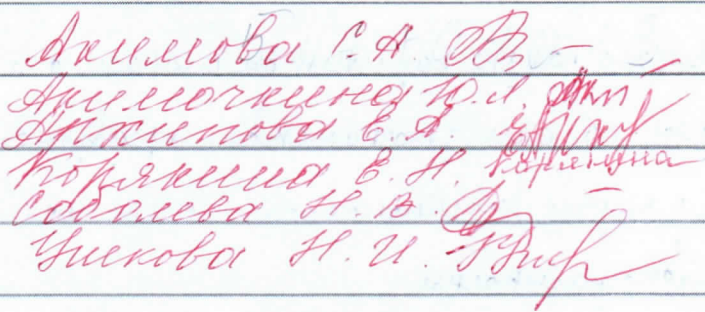 Акимова С. А
Акимочкина Ю.А.
Архипова Е. А.
Корякина Е. Н. Корякина
Соболева Н. В.
Ункова Н. И.